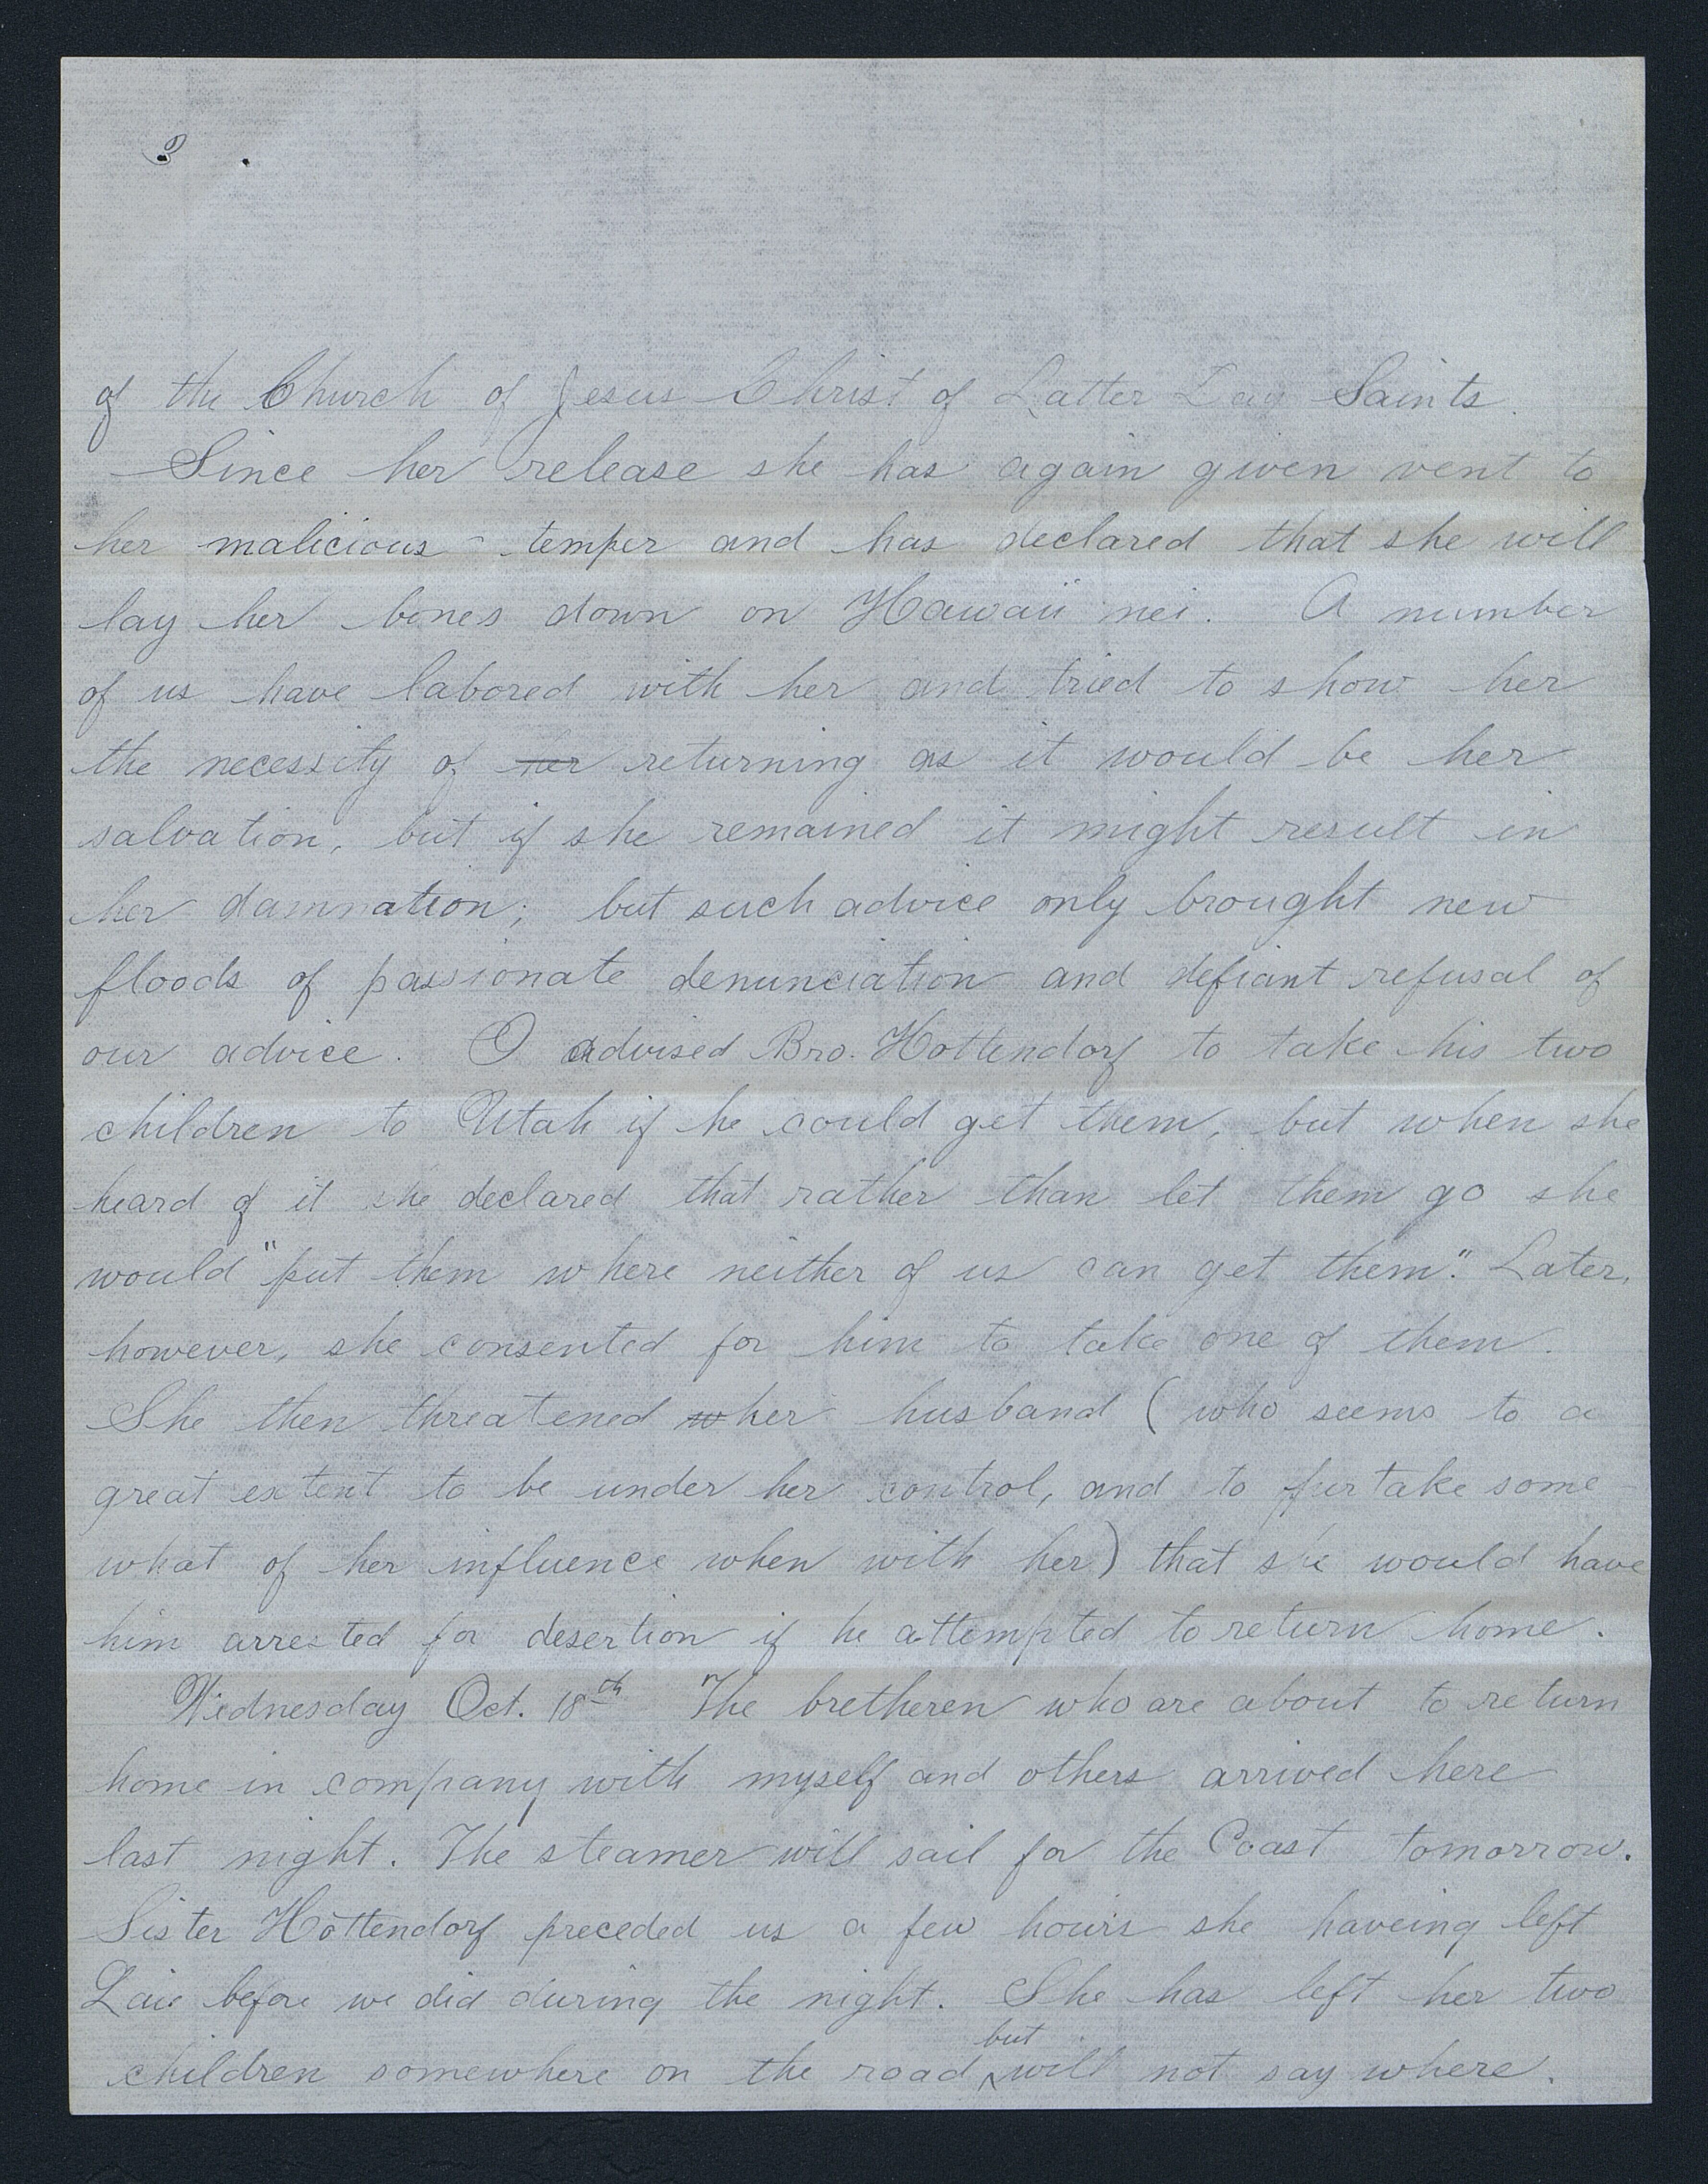 3 .
of the Church of Jesus Christ of Latter Day Saints.
Since her release she has again given vent to
her malicious temper and has declared that she will
lay her bones down on Hawaii nei. A number
of us have labored with her and tried to show her
the necessity of her returning as it would be her
salvation, but if she remained it might result in
her damnation; but such advice only brought new
floods of passionate denunciation and defiant refusal of
our advice. I advised Bro. Hottendorf to take his two
children to Utah if he could get them, but when she
heard of it she declared that rather than let them go she
would "put them where neither of us can get them". Later,
however, she consented for him to take one of them.
She then threatened w her husband (who seems to a
great extent to be under her control, and to purtake some
what of her influence when with her) that she would have
him arrested for desertion if he attempted to return home.
Wednesday Oct. 18th The bretheren who are about to return
home in company with myself and others arrived here
last night. The steamer will sail for the Coast tomorrow.
Sister Hottendorf preceded us a few hours she haveing left
Laie before we did during the night. She has left her two
but
children somewhere on the road ^ will not say where.